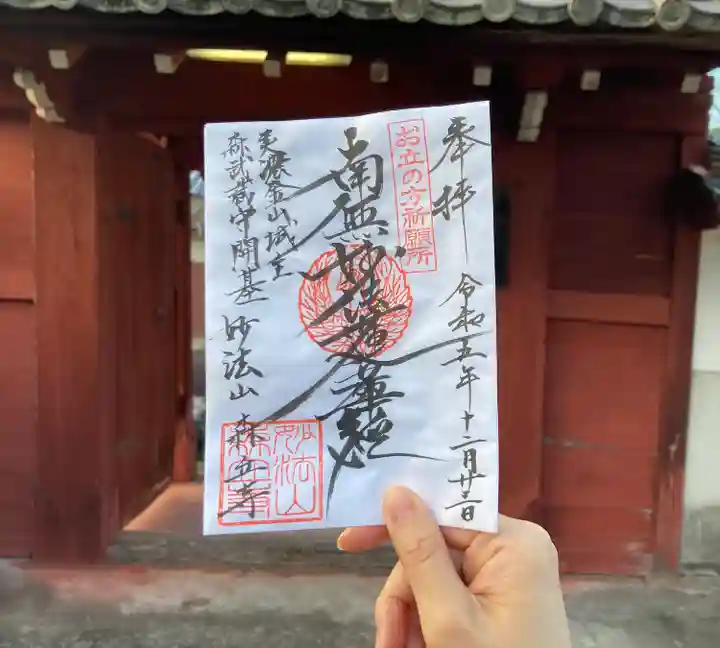 奉拝
令和五年十二月廿二日
お立の方祈願所
南無妙法蓮華経
美濃金山城主
森武蔵守開基 妙法山 森立寺
妙法山
森立寺